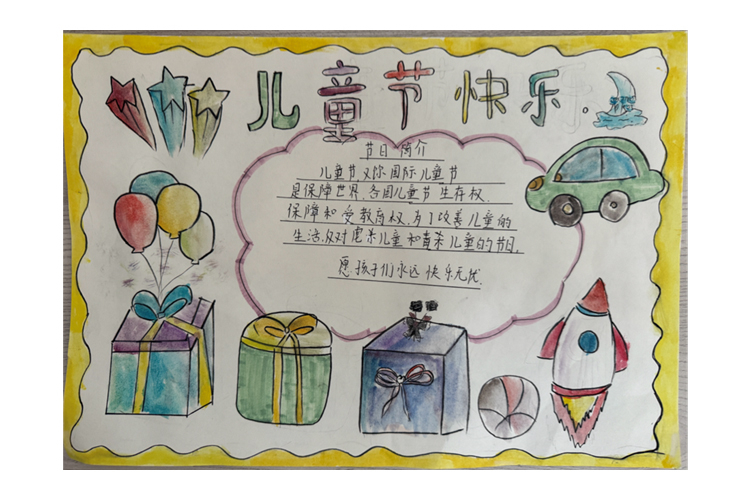 儿童节快乐.
节日简介
儿童节,又称国际儿童节
是保障世界.各国儿童节生存权.
保障和受教育权,为了改善儿童的
生活,反对虐杀儿童和毒杀儿童的节日,
愿孩子们永远快乐无忧.